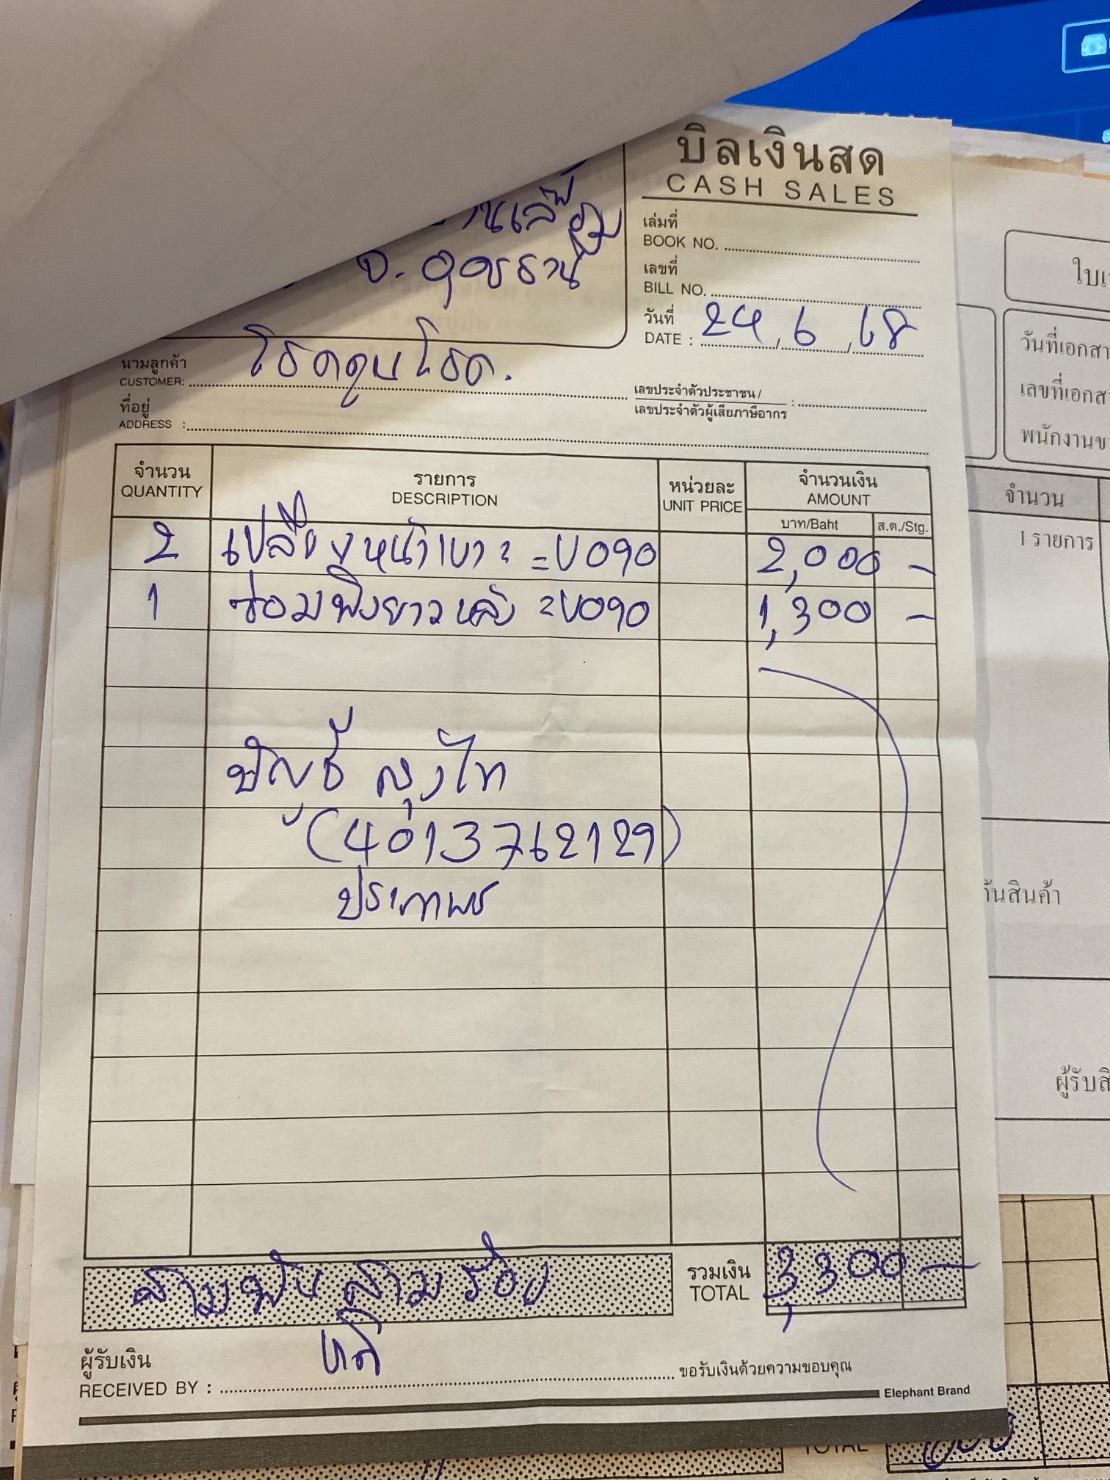 บิลเงินสด
CASH SALES
จ. อุดรธานี
เล่มที่
BOOK NO.
เลขที่
BILL NO.
วันที่
DATE : 24, 6, 68
นามลูกค้า
CUSTOMER: โชคคูนโชค.
เลขประจำตัวประชาชน/
เลขประจำตัวผู้เสียภาษีอากร :
ที่อยู่
ADDRESS :
จำนวน รายการ หน่วยละ จำนวนเงิน
QUANTITY DESCRIPTION UNIT PRICE AMOUNT
บาท/Baht ส.ต./Stg.
2 หน้าเบาะ = U090 2,000 -
1 ซ่อมพิงยาวหลัง = U090 1,300 -
บัญชี ลุงไท
(4013762129)
สามพันสามร้อย
รวมเงิน
TOTAL 3,300 -
ผู้รับเงิน
RECEIVED BY :
ขอรับเงินด้วยความขอบคุณ
Elephant Brand
วันที่เอกสา
เลขที่เอกส
พนักงานข
จำนวน
1 รายการ
ผู้รับสิ
TOTAL